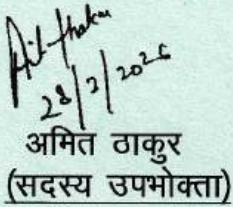 Amit Thakur
28/2/2025
अमित ठाकुर
(सदस्य उपभोक्ता)